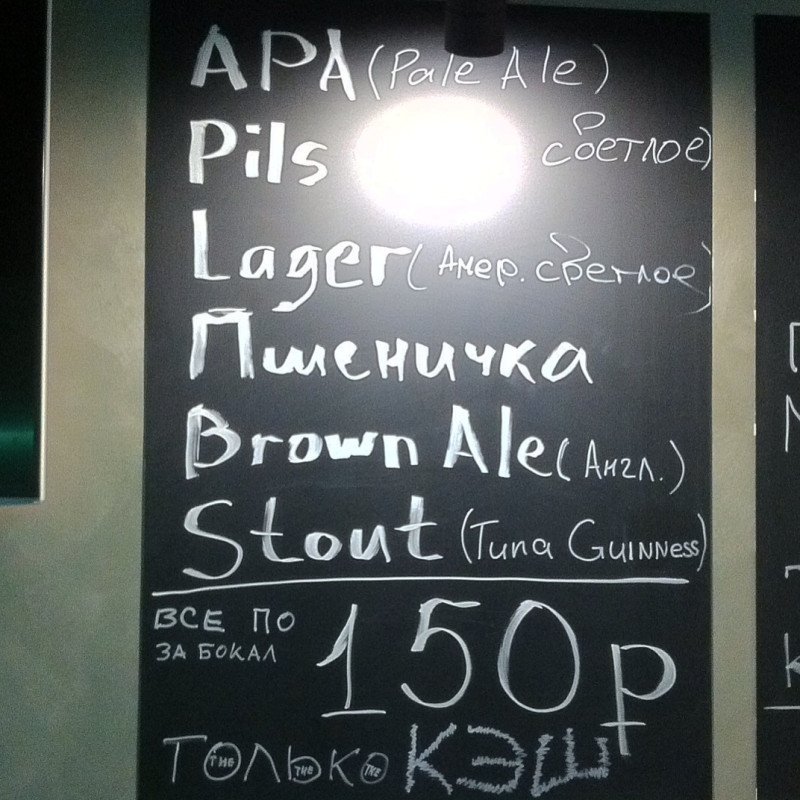 APA (Pale Ale)
Pils светлое)
Lager (Амер. светлое)
Пшеничка
Brown Ale (Англ.)
Stout (Типа GUINNESS)
ВСЕ ПО
ЗА БОКАЛ
150р
ТОЛЬКО КЭШ
THE THE THE